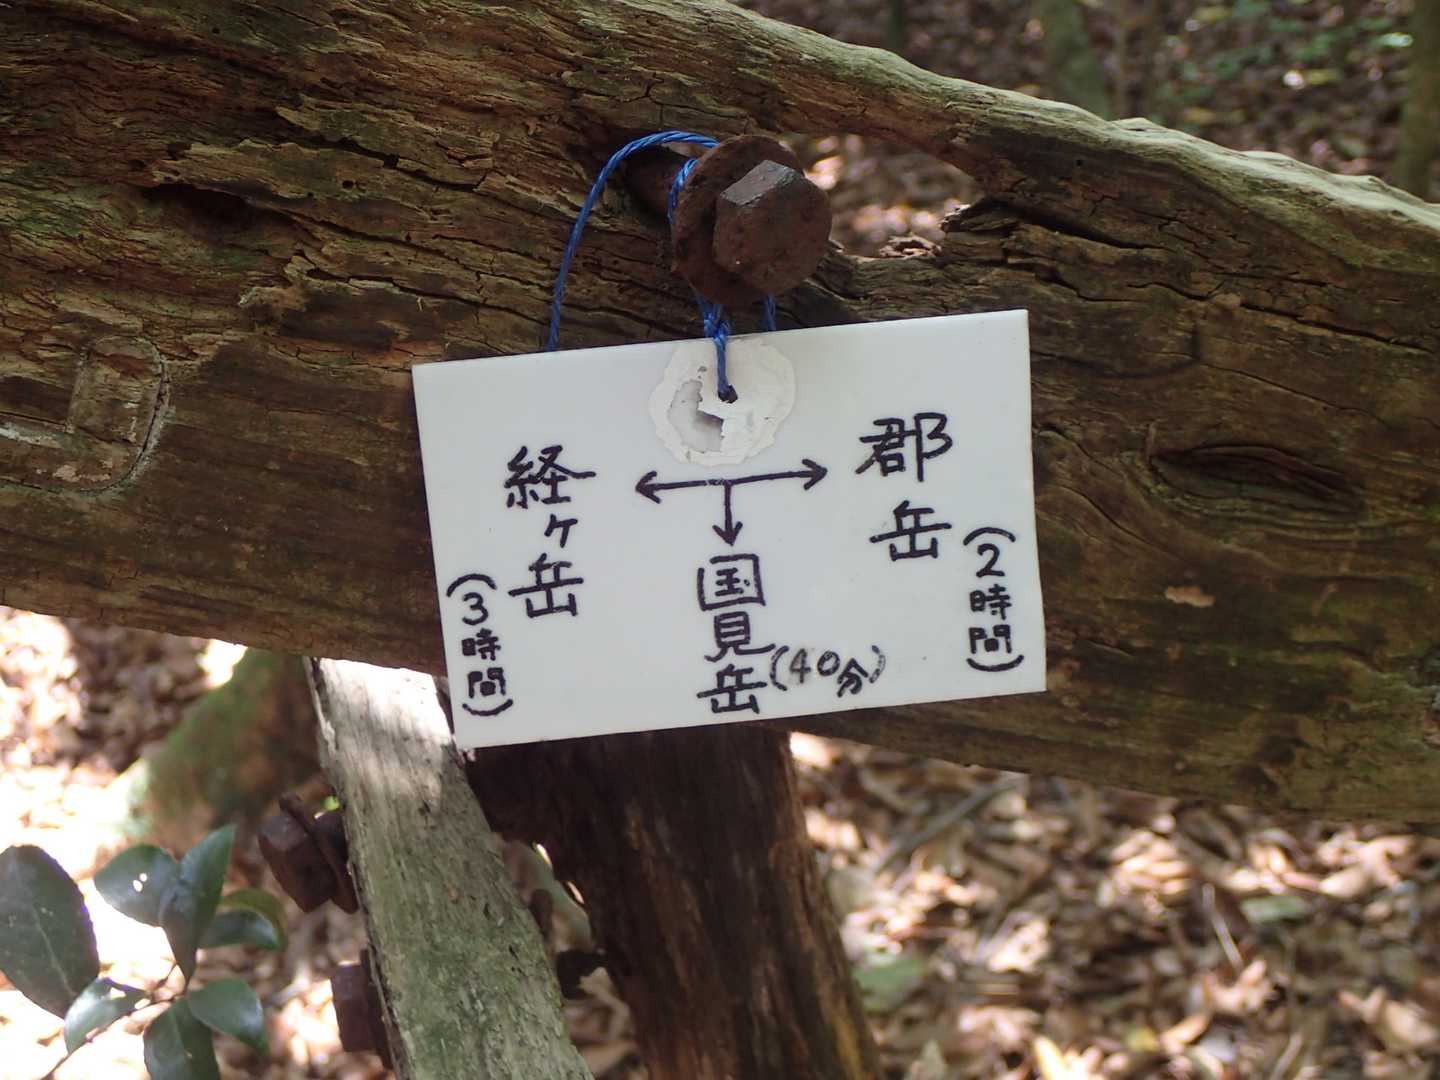 経ヶ岳
(3時間)
国見岳(40分)
郡岳
(2時間)